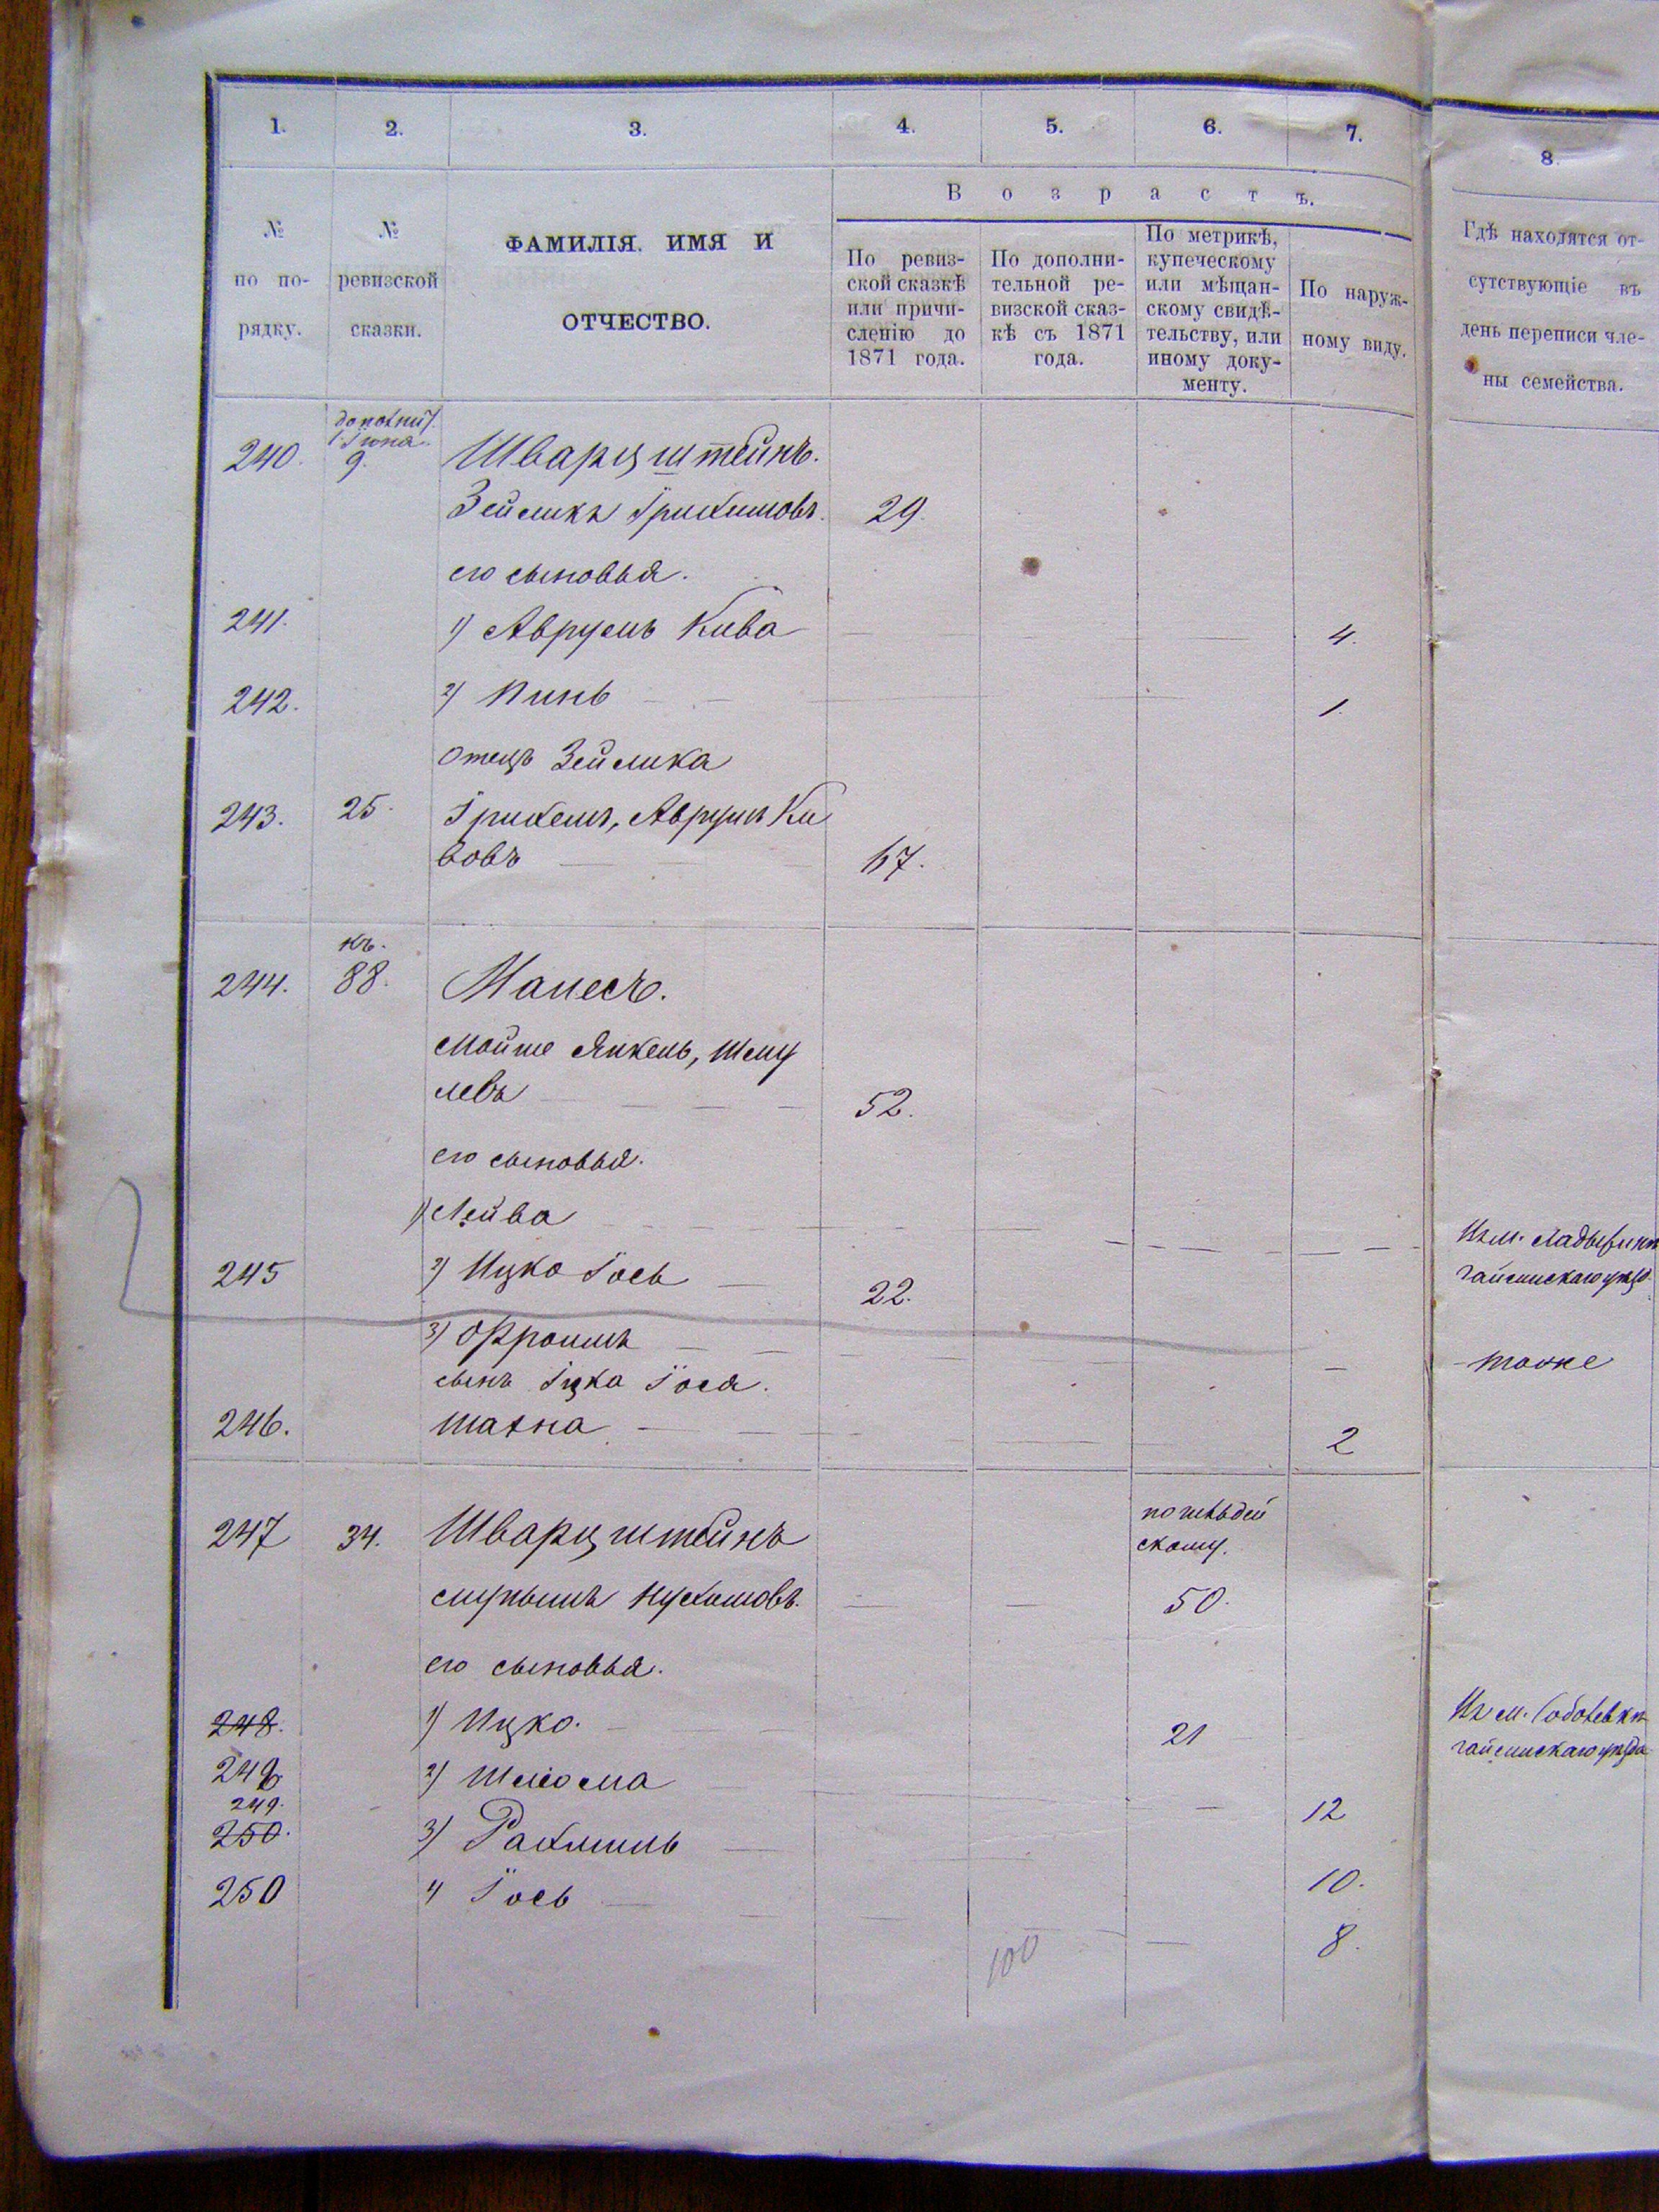 1. 2. 3. 4. 5. 6. 7. 8.
В о з р а с т ъ.
№ по по- рядку.
№ ревизской сказки.
ФАМИЛІЯ. ИМЯ И
ОТЧЕСТВО.
По ревиз-
ской сказкѣ
или причи-
сленію до
1871 года.
По дополни-
тельной ре-
визской сказ-
кѣ съ 1871
года.
По метрикѣ,
купеческому
или мѣщан-
скому свидѣ-
тельству, или
иному доку-
менту.
По наруж-
ному виду.
Гдѣ находятся от-
сутствующіе въ
день переписи чле-
ны семейства.
240. 9. Шварцштейнъ.
Зейликъ Ӏрихимовъ. 29.
его сыновья.
241. 1) Аврумъ Кива 4.
242. 2) Пинь 1.
отецъ Зейлика
243. 25. Ӏрихемъ, Аврумъ Ки
вовъ 67.
къ.
244. 88. Манесъ.
Мойше Янкель, Шму
левъ 52.
его сыновья.
1) Лейва Из м.
245 2) Ицко Ӏось 22. гайсинскаго уѣзд.
3) Фроимъ тоже
сынъ Ӏцка Ӏося.
246. Шахна 2
247 34. Шварцштейнъ
скому.
Нухимовъ. 50.
его сыновья.
248. 1) Ицко. 21 Из м. Соболевки
гайсинскаго уѣзда
248 2) Шлёма 12
249.
250. 3) Рахмиль 10.
250 4 Ӏось 8.
100